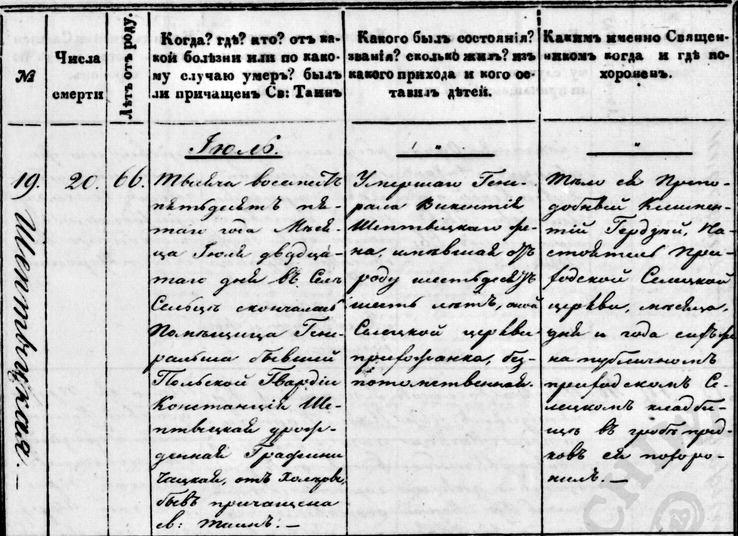 №
Числа
смерти
Лѣтъ отъ роду.
Когда? гдѣ? кто? отъ ка-
кой болѣзни или по како-
му случаю умеръ? былъ
ли причащенъ Св: Таинъ
Какого былъ состоянія?
званія? сколько жилъ? изъ
какого прихода и кого ос-
тавилъ дѣтей.
Какимъ именно Священ-
никомъ когда и гдѣ по-
хороненъ.
Іюль.
"
"
19.
20.
66.
Шептыцкая
Тысяча восемьсотъ
пятьдесятъ
таго года Мѣся-
ца Іюля двадца-
таго дня въ Селѣ
Сельцѣ скончалась
Помѣщица Гене-
ральша бывшей
Польской Гвардіи
Констанція Ше-
птыцкая урож-
денная Графиня
отъ Холеры,
бывъ причащена
св: таинъ. —
Умершаго Гене-
рала Викентія
Шептыцкаго же-
на имѣвшая отъ
роду шестьдесятъ
шесть лѣтъ, оной
Селецкой церкви
прихожанка, без-
потомственная
Тѣло ея Препо-
добный Климен-
тій На-
стоятель При-
ходской Селецкой
церкви, мѣсяца,
дня и года
на публичномъ
приходскомъ Се-
лецкомъ кладби-
щѣ въ гробѣ пред-
ковъ ея похоро-
нилъ. —